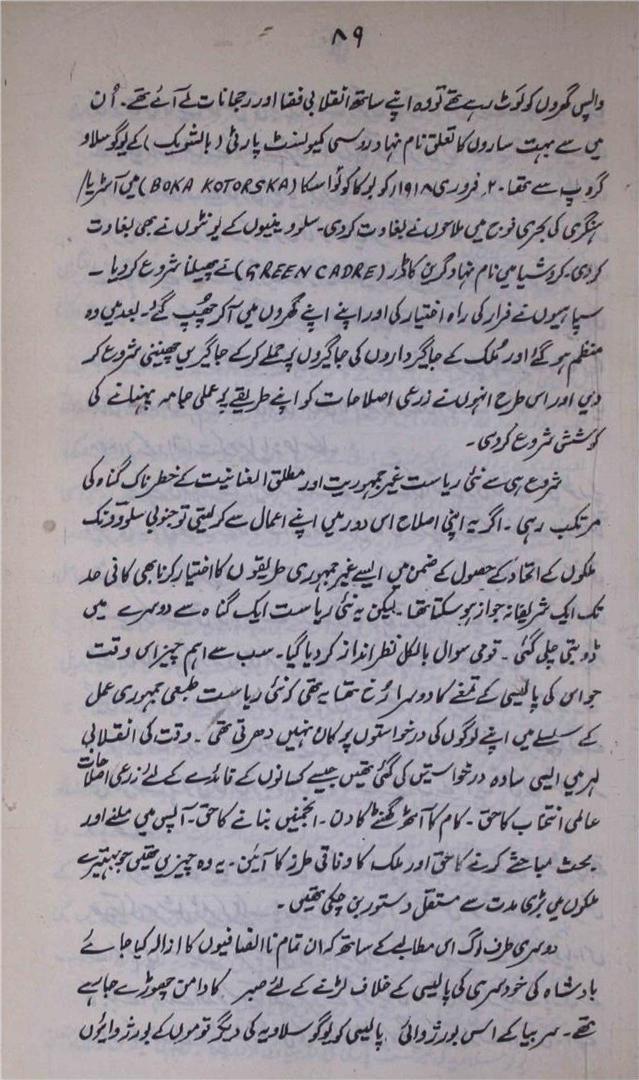 ۸۹
واپس گھروں کو لوٹ رہے تھے تو وہ اپنے ساتھ انقلابی فضا اور رجحانات لے آئے تھے۔ اُن
میں سے بہت ساروں کا تعلق نام نہاد روسی کمیونسٹ پارٹی (بالشویک) کے یوگوسلاو
گروپ سے تھا۔ ۲؍ فروری ۱۹۱۸ء کو بوکا کوٹواسکا (BOKA KOTORSKA) میں آسٹریا/
ہنگری کی بحری فوج میں ملاحوں نے بغاوت کردی۔ سلووینیوں کے یونٹوں نے بھی بغاوت
کردی۔ کروشیا میں نام نہاد گرین کاڈر (GREEN CADRE) نے پھیلنا شروع کر دیا۔
سپاہیوں نے فرار کی راہ اختیار کی اور اپنے اپنے گھروں میں آکر چھپ گئے۔ بعد میں وہ
منظم ہو گئے اور ملک کے جاگیرداروں کی جاگیروں پر حملے کرکے جاگیریں چھیننی شروع کر
دیں اور اس طرح انہوں نے زرعی اصلاحات کو اپنے طریقے پر عملی جامہ پہنانے کی
کوشش شروع کردی۔
شروع ہی سے نئی ریاست غیر جمہوریت اور مطلق العنانیت کے خطرناک گناہ کی
مرتکب رہی۔ اگر یہ اپنی اصلاح اس دور میں اپنے اعمال سے کر لیتی تو جنوبی سلووونک
ملکوں کے اتحاد کے حصول کے ضمن میں ایسے غیر جمہوری طریقوں کا اختیار کرنا بھی کافی حد
تک ایک شریفانہ جواز ہو سکتا تھا۔ لیکن یہ نئی ریاست ایک گناہ سے دوسرے میں
ڈوبتی چلی گئی۔ قومی سوال بالکل نظر انداز کر دیا گیا۔ سب سے اہم چیز اس وقت
جو اس کی پالیسی کے تمغے کا دوسرا رُخ تھا یہ تھی کہ نئی ریاست طبعی جمہوری عمل
کے سلسلے میں اپنے لوگوں کی درخواستوں پر کان نہیں دھرتی تھی۔ وقت کی انقلابی
لہر میں ایسی سادہ درخواستیں کی گئی تھیں جیسے کسانوں کے فائدے کے لئے زرعی اصلاحات
عالمی انتخاب کا حق۔ کام کا آٹھ گھنٹے کا دن۔ انجمنیں بنانے کا حق۔ آپس میں ملنے اور
بحث مباحثے کرنے کا حق اور ملک کا وفاقی طرز کا آئین۔ یہ وہ چیزیں تھیں جو بہتیرے
ملکوں میں بڑی مدت سے مستقل دستور بن چکی تھیں۔
دوسری طرف لوگ اس مطالبے کے ساتھ کہ ان تمام ناانصافیوں کا ازالہ کیا جائے
بادشاہ کی خودسری کی پالیسی کے خلاف لڑنے کے لئے صبر کا دامن چھوڑے جا رہے
تھے۔ سربیا کے اس بورژوائی پالیسی کو یوگوسلاویہ کی دیگر قوموں کے بورژوایوں